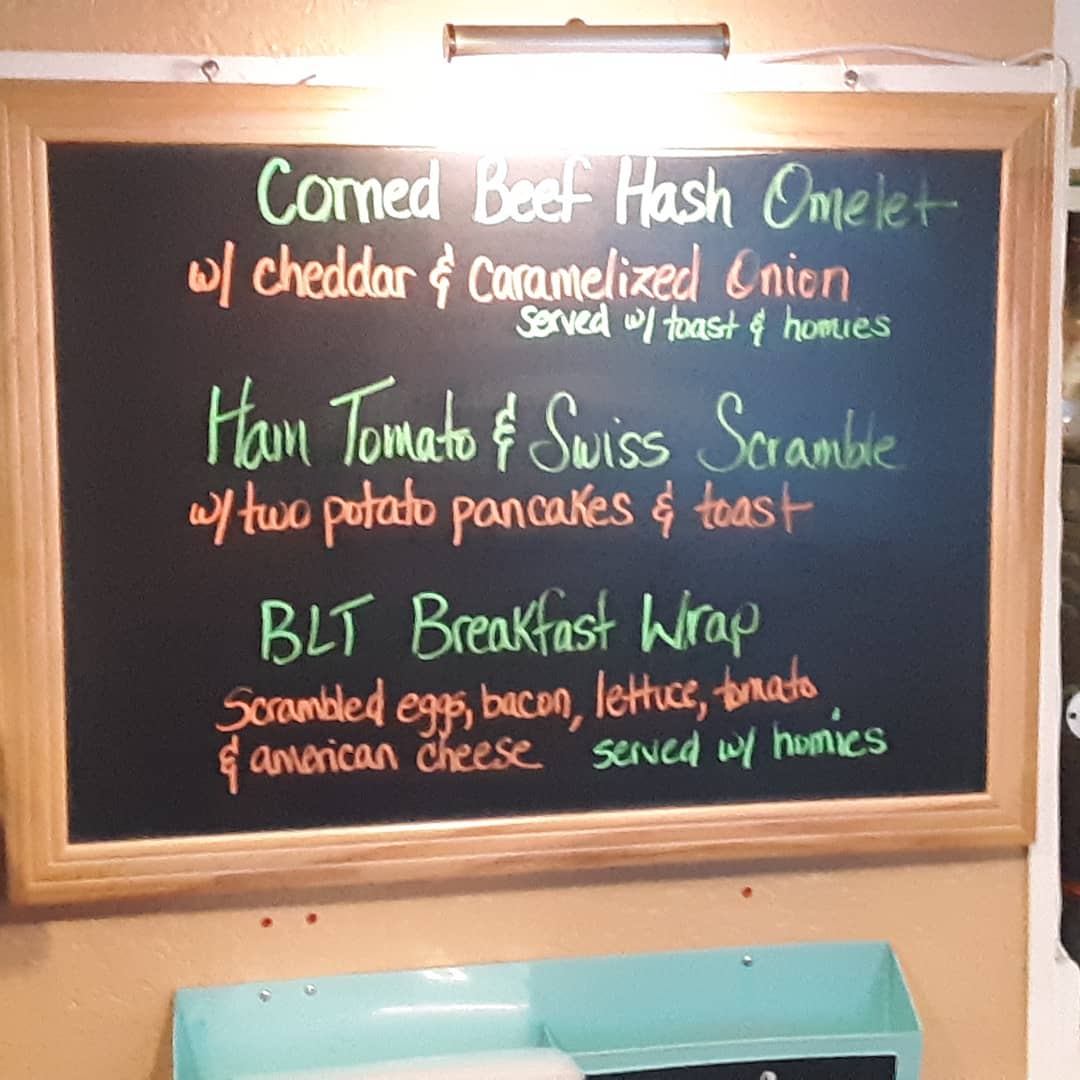 Corned Beef Hash Omelet
w/ cheddar & Caramelized Onion
served w/ toast & homies
Ham Tomato & Swiss Scramble
w/ two potato pancakes & toast
BLT Breakfast Wrap
Scrambled eggs, bacon, lettuce, tomato
& american cheese served w/ homies